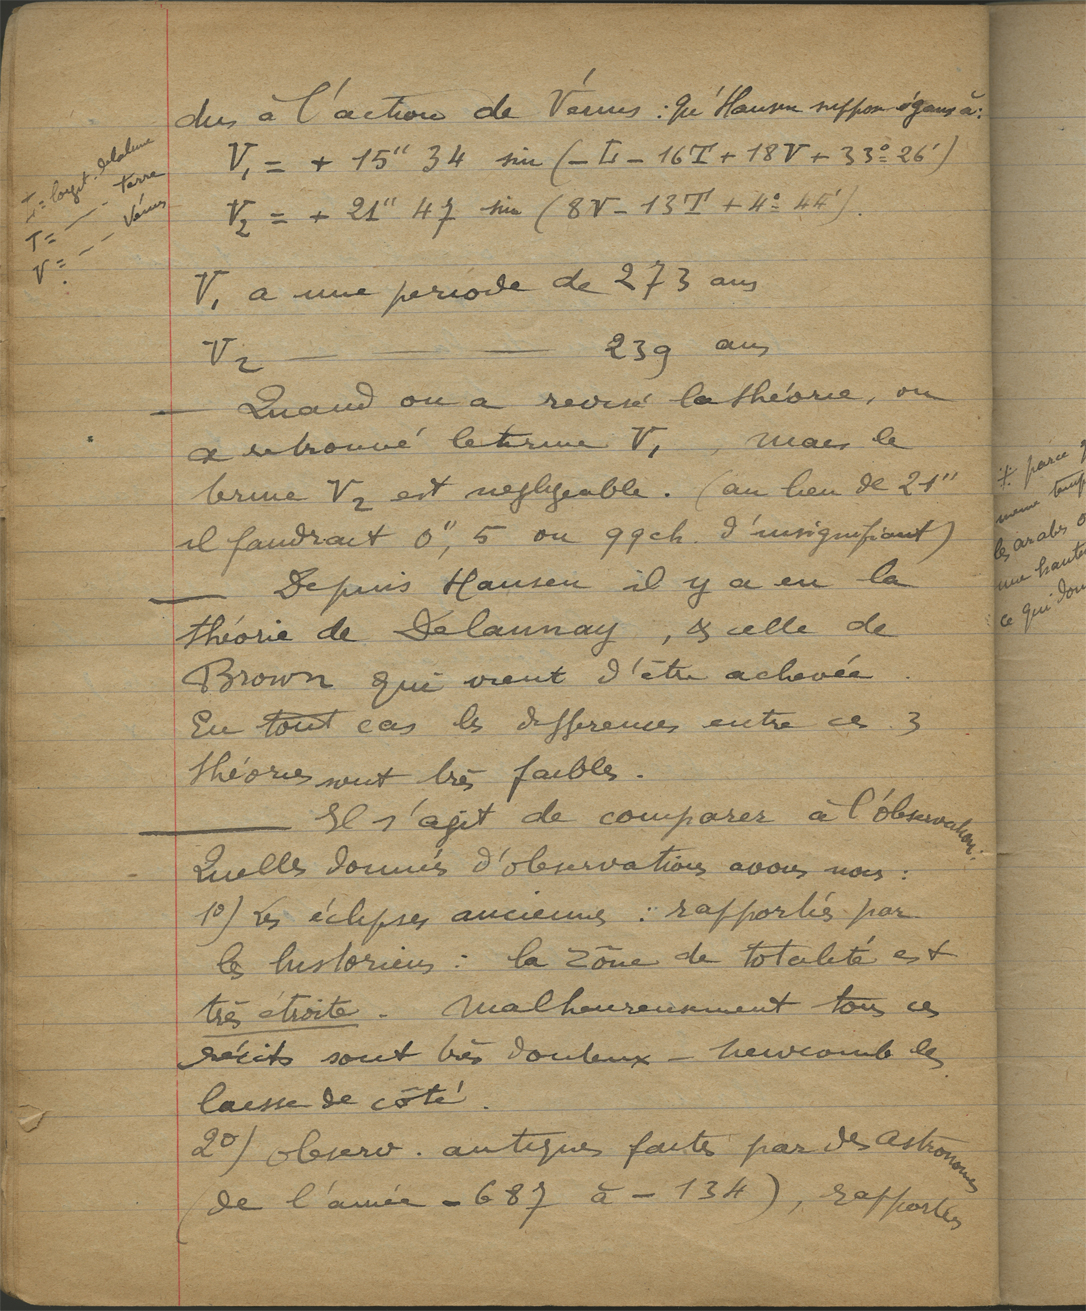 dus à l'action de Vénus : qu'Hansen suppose égaux à :
V₁ = + 15" 34 sin (– L – 16T + 18V + 33° 26')
V₂ = + 21" 47 sin (8V – 13T + 4° 44').
L = longit. de la lune
T = — - terre
V = — — Vénus
V₁ a une période de 273 ans
V₂ — — 239 ans
— Quand on a revisé la théorie, on
a retrouvé le terme V₁ , mais le
terme V₂ est négligeable. (au lieu de 21"
il faudrait 0", 5 ou qqch. d'insignifiant)
— Depuis Hansen il y a eu la
théorie de Delaunay , & celle de
Brown qui vient d'être achevée .
En tout cas les differences entre ces 3
théories sont très faibles .
— Il s'agit de comparer à l'observation.
Quelles données d'observations avons nous :
1°) Les éclipses anciennes : rapportés par
les historiens : la zône de totalité est
très étroite . Malheureusement tous ces
récits sont très douteux – Newcomb les
laisse de côté .
2°) observ . antiques faites par des astronomes
(de l'année – 687 à – 134) , rapportés
parce
même
les arabes
une
ce qui